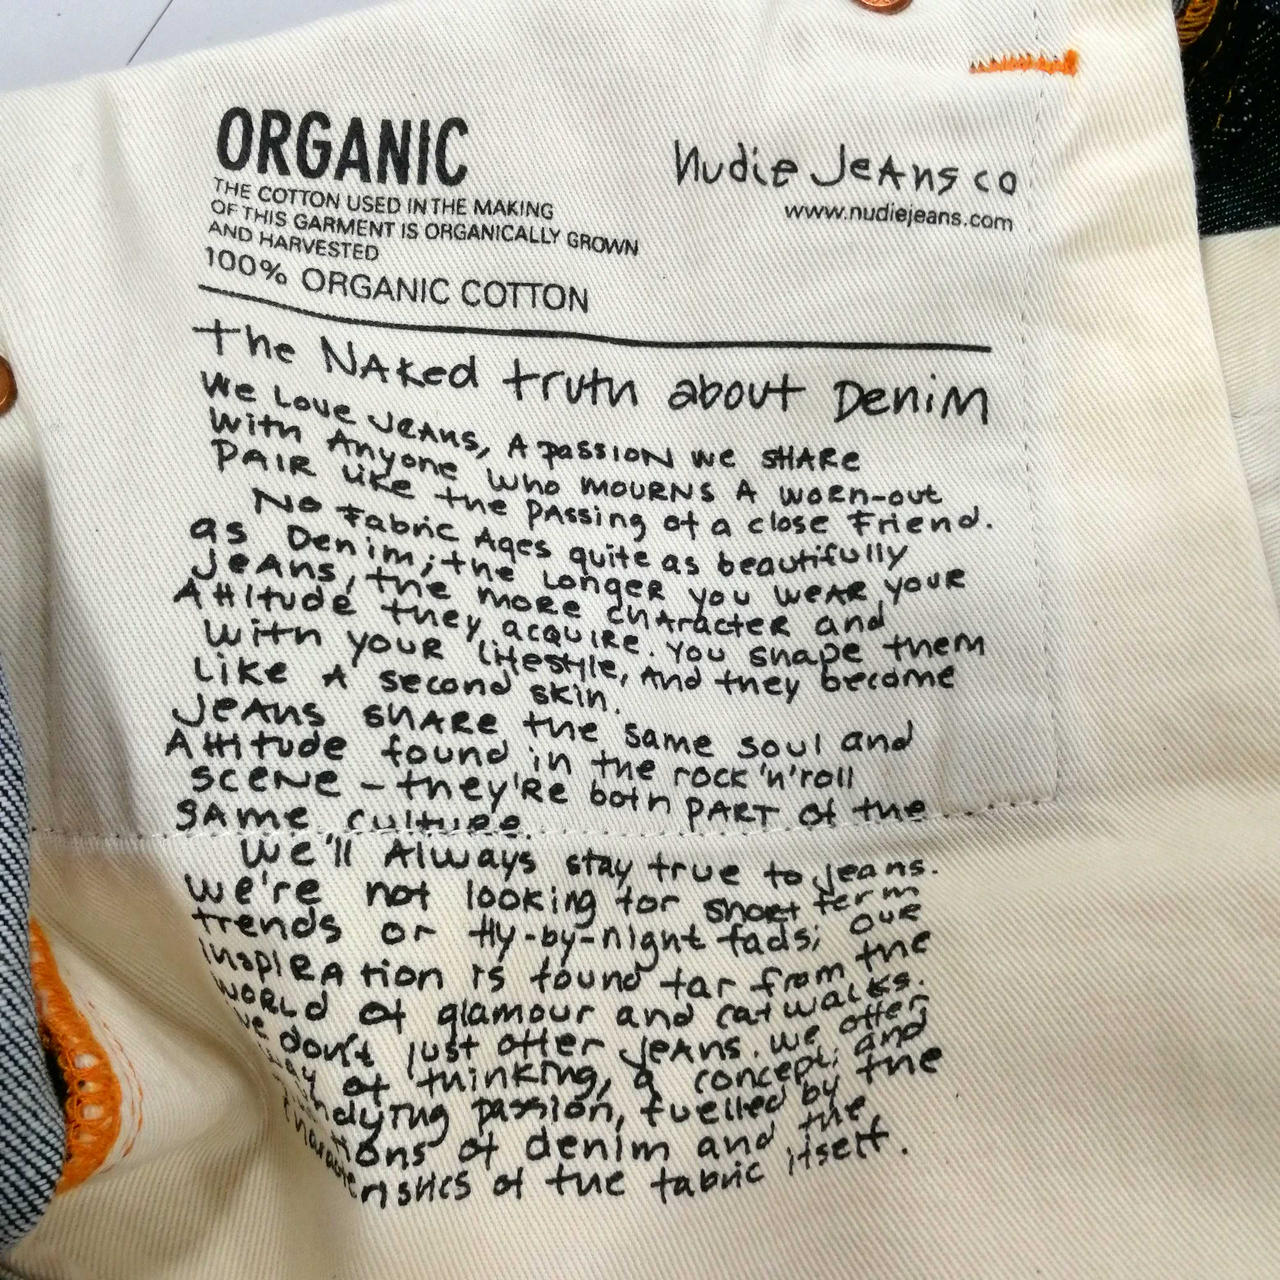 ORGANIC
THE COTTON USED IN THE MAKING
OF THIS GARMENT IS ORGANICALLY GROWN
AND HARVESTED
100% ORGANIC COTTON
Nudie Jeans co
www.nudiejeans.com
The Naked truth about Denim
We Love Jeans, A passion we share
with Anyone who mourns A worn-out
pair like the passing of a close friend.
No Fabric Ages quite as beautifully
as Denim; the longer you wear your
Jeans, the more character and
Attitude they acquire. You shape them
with your lifestyle, and they become
like A second skin.
Jeans share the same soul and
Attitude found in the rock 'n' roll
scene - they're both part of the
same culture.
We'll Always stay true to jeans.
we're not looking for short term
trends or fly-by-night fads; our
inspiration is found far from the
world of glamour and catwalks.
we don't just offer jeans. we offer
of thinking, a concept; and
passion, fuelled by the
of denim and the
of the fabric itself.